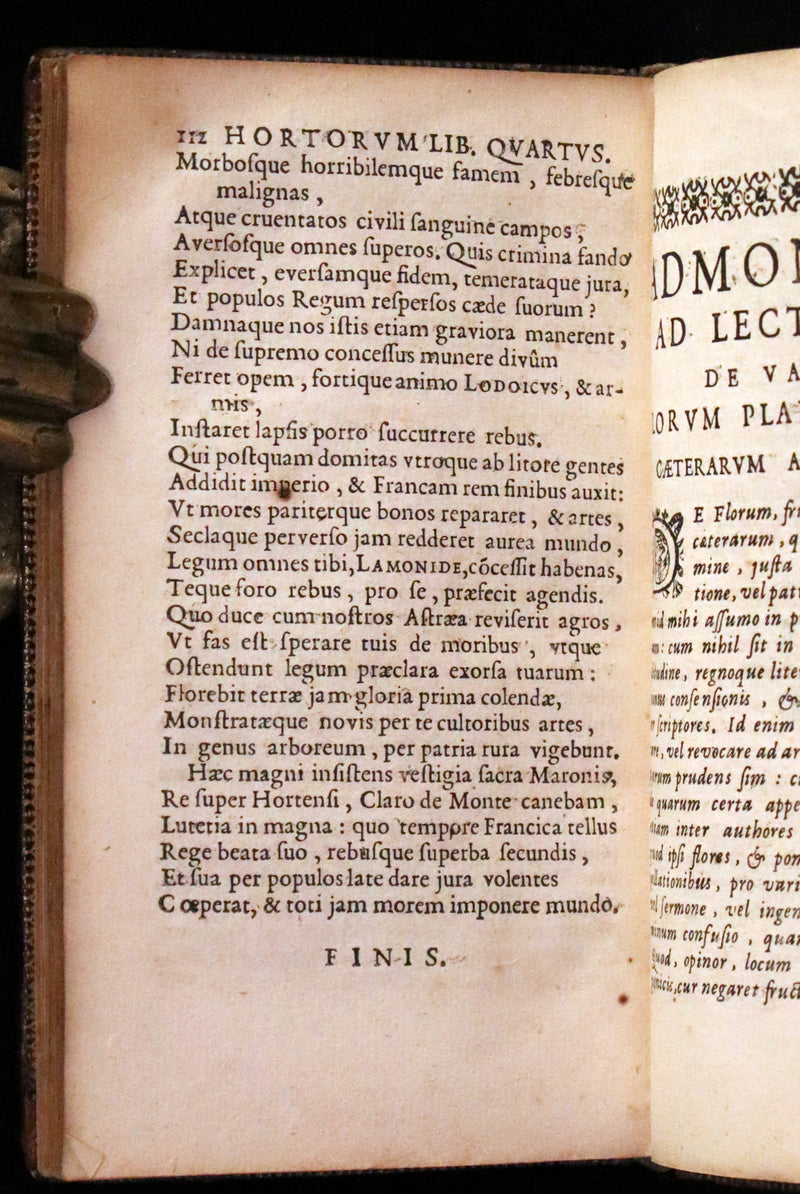 112 HORTORVM LIB. QVARTVS.
Morboſque horribilemque famem , febreſque
malignas ,
Atque cruentatos civili ſanguine campos ;
Averſoſque omnes ſuperos. Quis crimina fando
Explicet , everſamque fidem, temerataque jura,
Et populos Regum reſperſos cæde ſuorum ?
Damnaque nos iſtis etiam graviora manerent ,
Ni de ſupremo conceſſus munere divûm
Ferret opem , fortique animo LODOICVS , & ar-
mis ,
Inſtaret lapſis porro ſuccurrere rebus.
Qui poſtquam domitas vtroque ab litore gentes
Addidit imperio , & Francam rem finibus auxit:
Vt mores pariterque bonos repararet , & artes ,
Seclaque perverſo jam redderet aurea mundo ,
Legum omnes tibi, LAMONIDE, cõceſſit habenas,
Teque foro rebus , pro ſe , præfecit agendis.
Quo duce cum noſtros Aſtræa reviſerit agros ,
Vt fas eſt ſperare tuis de moribus , vtque
Oſtendunt legum præclara exorſa tuarum :
Florebit terræ jam gloria prima colendæ,
Monſtratæque novis per te cultoribus artes ,
In genus arboreum , per patria rura vigebunt.
Hæc magni inſiſtens veſtigia ſacra Maronis,
Re ſuper Hortenſi , Claro de Monte canebam ,
Lutetia in magna : quo tempore Francica tellus
Rege beata ſuo , rebuſque ſuperba ſecundis ,
Et ſua per populos late dare jura volentes
Cœperat, & toti jam morem imponere mundo.
FINIS.
ADMON
AD LECT
DE VA
PLA
CÆTERARVM A
DE Florum, fru
cæterarum , q
mine , juſta
tione, vel pati
mihi aſſumo in p
cum nihil ſit in
regnoque lite
conſenſionis , &
ſcriptores. Id enim
vel revocare ad ar
prudens ſim : c
quarum certa appe
inter authores
ipſi flores , & pom
pro vari
ſermone , vel ingen
confuſio , quar
Quod, opinor, locum
cur negaret fruct